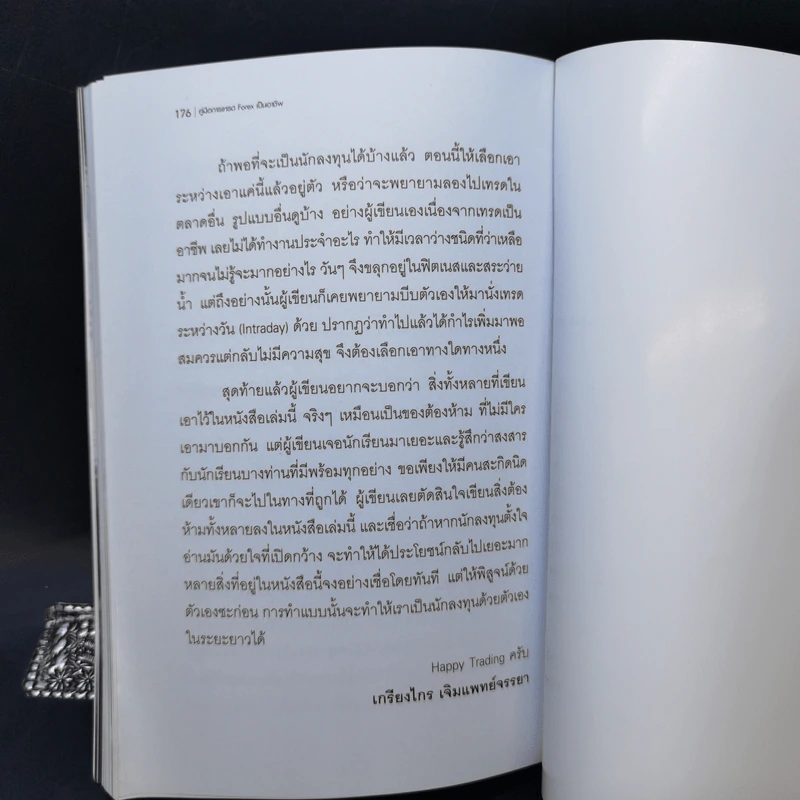 176 | คู่มือการเทรด Forex เป็นอาชีพ
ถ้าพอที่จะเป็นนักลงทุนได้บ้างแล้ว ตอนนี้ให้เลือกเอา
ระหว่างเอาแค่นี้แล้วอยู่ตัว หรือว่าจะพยายามลองไปเทรดใน
ตลาดอื่น รูปแบบอื่นดูบ้าง อย่างผู้เขียนเองเนื่องจากเทรดเป็น
อาชีพ เลยไม่ได้ทำงานประจำอะไร ทำให้มีเวลาว่างชนิดที่ว่าเหลือ
มากจนไม่รู้จะมากอย่างไร วันๆ จึงขลุกอยู่ในฟิตเนสและสระว่าย
น้ำ แต่ถึงอย่างนั้นผู้เขียนก็เคยพยายามบีบตัวเองให้มานั่งเทรด
ระหว่างวัน (Intraday) ด้วย ปรากฏว่าทำไปแล้วได้กำไรเพิ่มมาพอ
สมควรแต่กลับไม่มีความสุข จึงต้องเลือกเอาทางใดทางหนึ่ง
สุดท้ายแล้วผู้เขียนอยากจะบอกว่า สิ่งทั้งหลายที่เขียน
เอาไว้ในหนังสือเล่มนี้ จริงๆ เหมือนเป็นของต้องห้าม ที่ไม่มีใคร
เอามาบอกกัน แต่ผู้เขียนเจอนักเรียนมาเยอะและรู้สึกว่าสงสาร
กับนักเรียนบางท่านที่มีพร้อมทุกอย่าง ขอเพียงให้มีคนสะกิดนิด
เดียวเขาก็จะไปในทางที่ถูกได้ ผู้เขียนเลยตัดสินใจเขียนสิ่งต้อง
ห้ามทั้งหลายลงในหนังสือเล่มนี้ และเชื่อว่าถ้าหากนักลงทุนตั้งใจ
อ่านมันด้วยใจที่เปิดกว้าง จะทำให้ได้ประโยชน์กลับไปเยอะมาก
หลายสิ่งที่อยู่ในหนังสือนี้จงอย่างเชื่อโดยทันที แต่ให้พิสูจน์ด้วย
ตัวเองซะก่อน การทำแบบนั้นจะทำให้เราเป็นนักลงทุนด้วยตัวเอง
ในระยะยาวได้
Happy Trading ครับ
เกรียงไกร เจิมแพทย์จรรยา